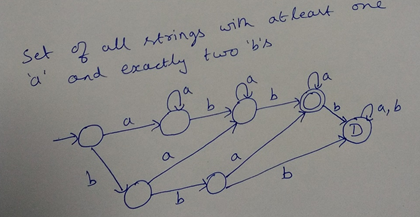 Set of all strings with atleast one
'a' and exactly two 'b's
a a a
a b b b a, b
D
a a
b b b